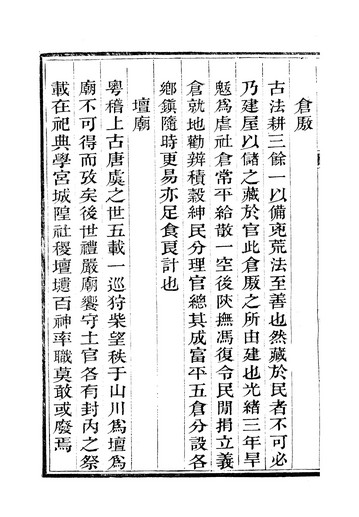 倉厫
古法耕三餘一以備兇荒法至善也然藏於民者不可必
乃建屋以儲之藏於官此倉厫之所由建也光緒三年旱
魃爲虐社倉常平給散一空後陝撫馮復令民閒捐立義
倉就地勸辦積穀紳民分理官總其成富平五倉分設各
鄉鎮隨時更易亦足食良計也
壇廟
粤稽上古唐虞之世五載一巡狩柴望秩于山川爲壇爲
廟不可得而攷矣後世禮嚴廟饗守土官各有封內之祭
載在祀典學宮城隍社稷壇壝百神率職莫敢或廢焉